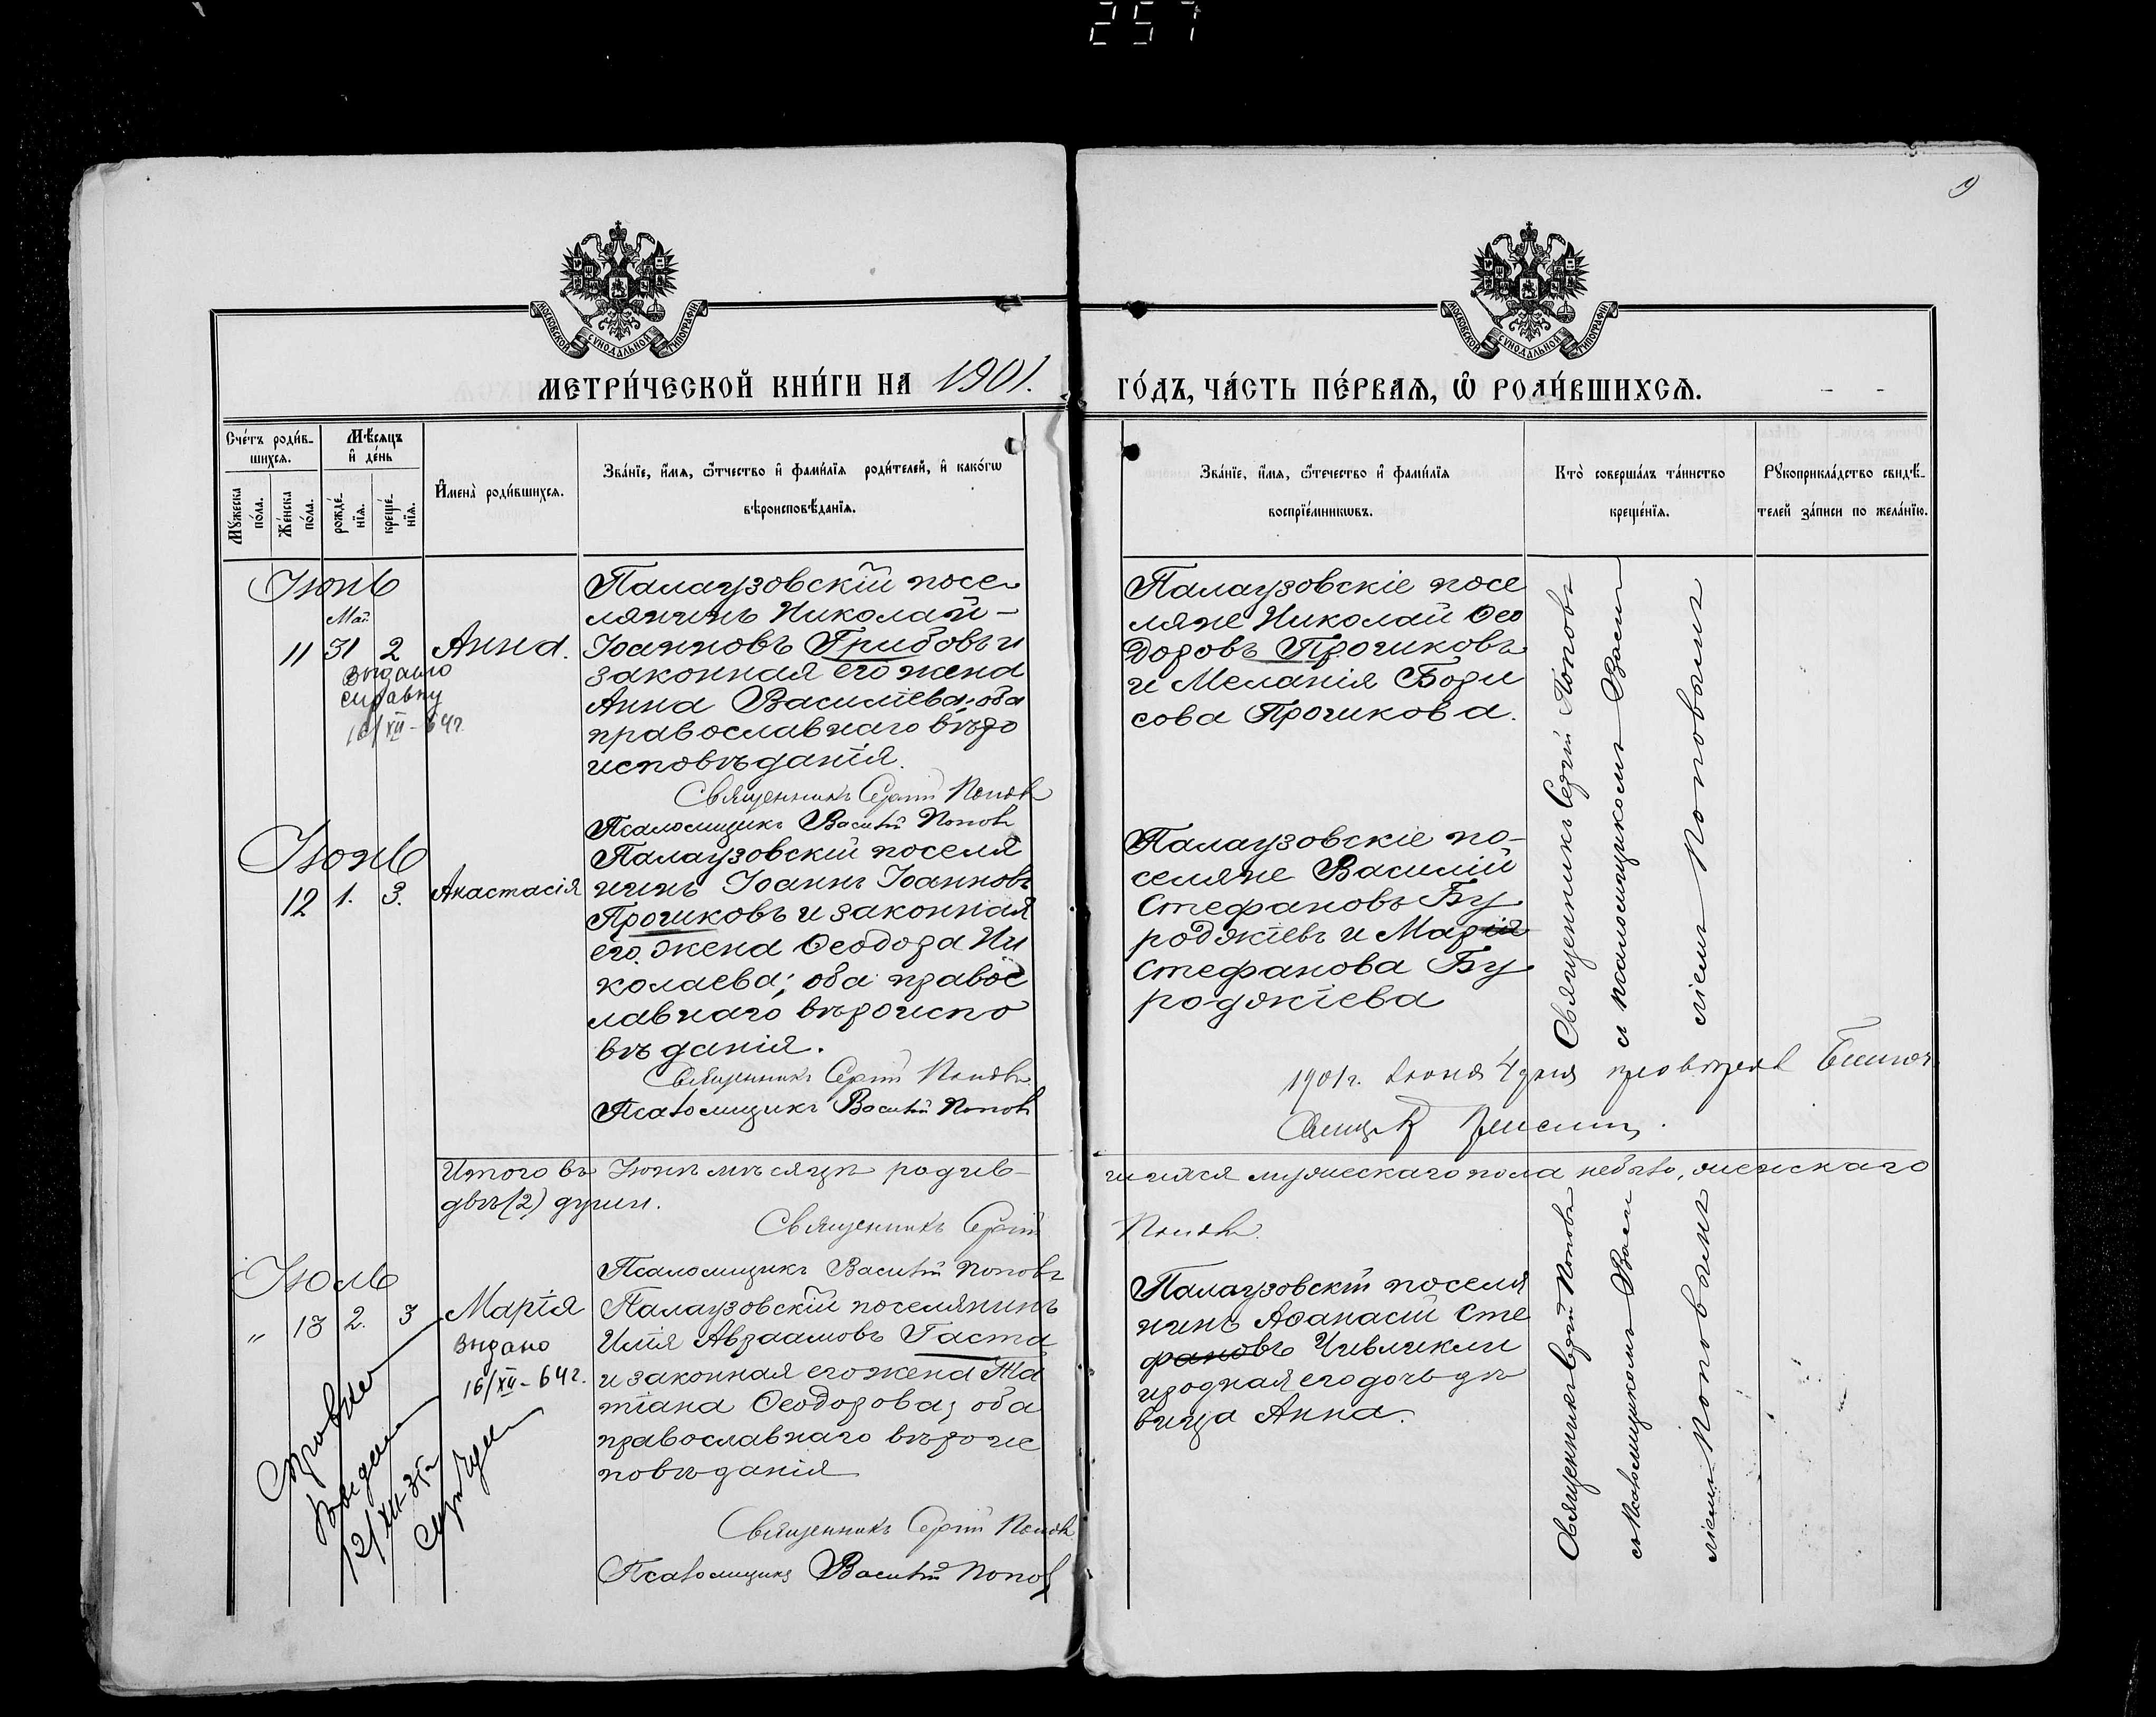 257
9
МОСКОВСКОЙ СУНОДАЛЬНОЙ ТИПОГРАФІИ
МОСКОВСКОЙ СУНОДАЛЬНОЙ ТИПОГРАФІИ
МЕТРИ́ЧЕСКОЙ КНИ́ГИ НА 1901.
ГО́ДЪ, ЧА́СТЬ ПЕ́РВАѦ, Ѽ РОДИ́ВШИХСѦ.
Счетъ роди́в-
шихся.
Мѣсяцъ
и де́нь
Мужеска по́ла.
Же́нска по́ла.
рожде́-
нія.
креще́-
нія.
Имена̀ роди́вшихся.
Зва́ніе, и́мя, ѻ́тчество и фами́лія роди́телей, и како́гѡ
вѣроисповѣ́данія.
Зва́ніе, и́мя, ѻ́течество и фами́лія
воспріе́мникѡвъ.
Кто̀ соверша́лъ та́инство
креще́нія.
Рукоприкла́дство свидѣ́-
телей за́писи по жела́нію.
Іюнь
Мая
11 31 2 Анна.
выдано
справку
16/XII-64г.
Палаузовскій посе
лянинъ Николай
Іоанновъ Грибовъ и
законная его жена
Анна Василіева; оба
православнаго вѣро
исповѣданія.
Священникъ Сергій Поповъ
Псаломщикъ Василій Поповъ
Палаузовскіе посе
ляне Николай Ѳео
доровъ Прочиковъ
и Меланія Бори
сова Прочикова.
Священникъ Сергій Поповъ
съ псаломщикомъ Васи
ліемъ Поповымъ
Іюнь
12 1. 3. Анастасія
Палаузовскій поселя
нинъ Іоаннъ Іоанновъ
Прочиковъ и законная
его жена Ѳеодора Ни
колаева; оба правос
лавнаго вѣроиспо
вѣданія.
Священникъ Сергій Поповъ
Псаломщикъ Василій Поповъ
Палаузовскіе по-
селяне Василій
Стефановъ Бу
роджіевъ и Марія
Стефанова Бу
роджіева
1901г. Іюня 4 дня
Итого въ Іюнѣ мѣсяцѣ родив-
шихся мужескаго пола небыло, женскаго
двѣ (2) души.
Священникъ Сергій
Поповъ.
Псаломщикъ Василій Поповъ
Іюль
" 13 2. 3 Марія
выдано
16/XII-64г.
Палаузовскій поселянинъ
Илія Авраамовъ Гаста
и законная его жена Та
тіана Ѳеодорова; оба
православнаго вѣроис
повѣданія
Священникъ Сергій Поповъ
Псаломщикъ Василій Поповъ
Палаузовскій поселя
нинъ Аѳанасій Сте
фановъ Чивликли
и родная его дочь дѣ
вица Анна.
Священникъ Сергій Поповъ
съ псаломщикомъ Васи
ліемъ Поповымъ